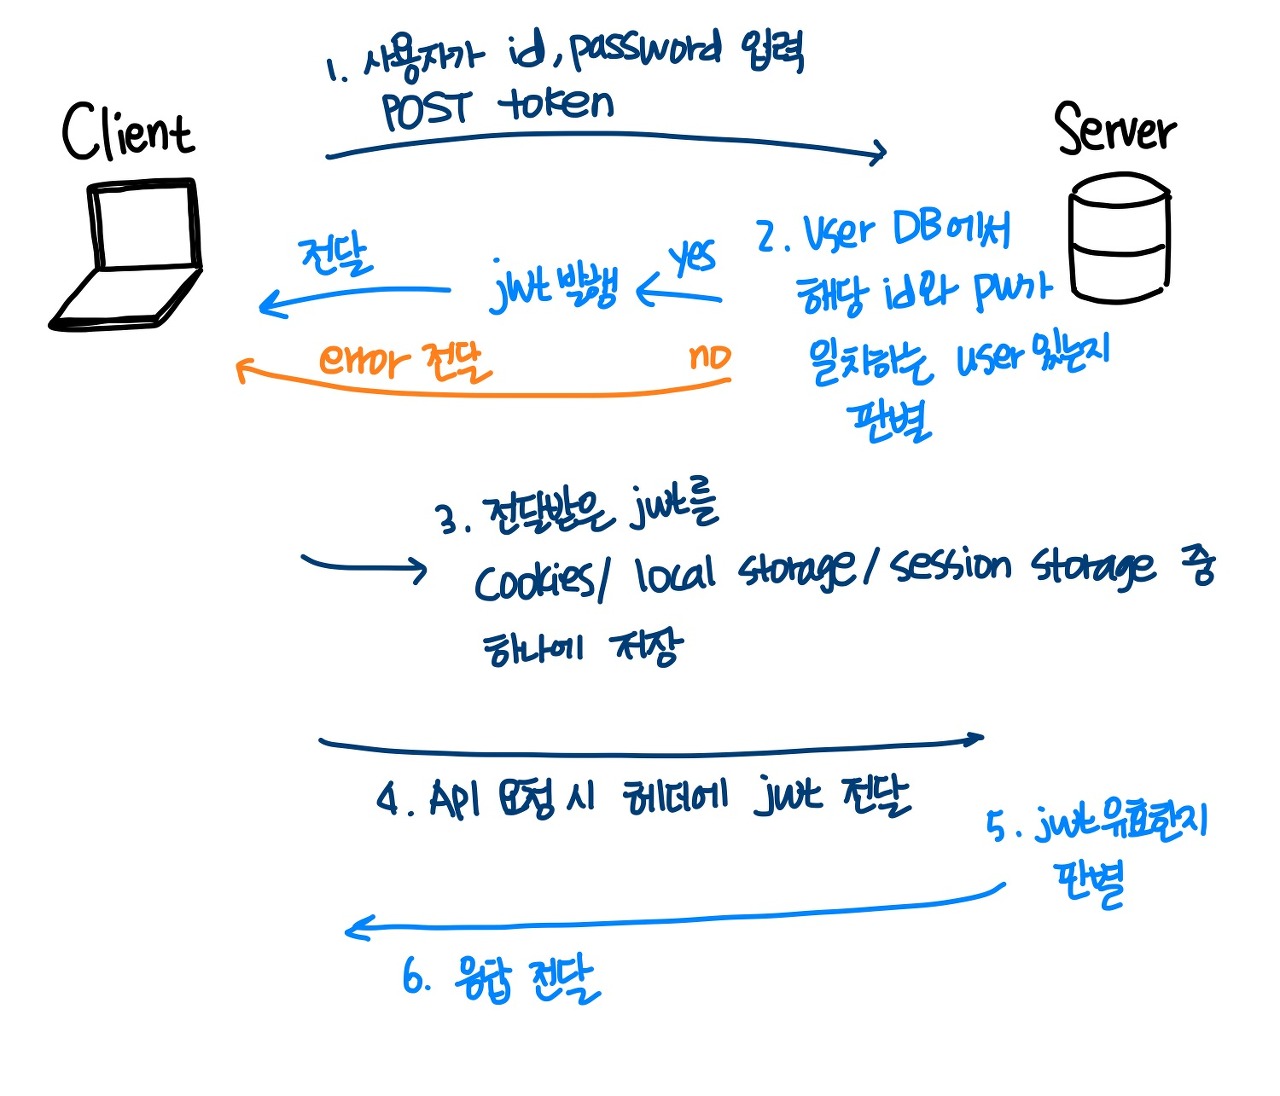 1. 사용자가 id, password 입력
POST token
Client
Server
2. User DB에서
해당 id와 pw가
일치하는 user 있는지
판별
yes
jwt 발행
전달
no
error 전달
3. 전달받은 jwt를
Cookies/ local storage/ session storage 중
하나에 저장
4. API 요청 시 헤더에 jwt 전달
5. jwt 유효한지
판별
6. 응답 전달